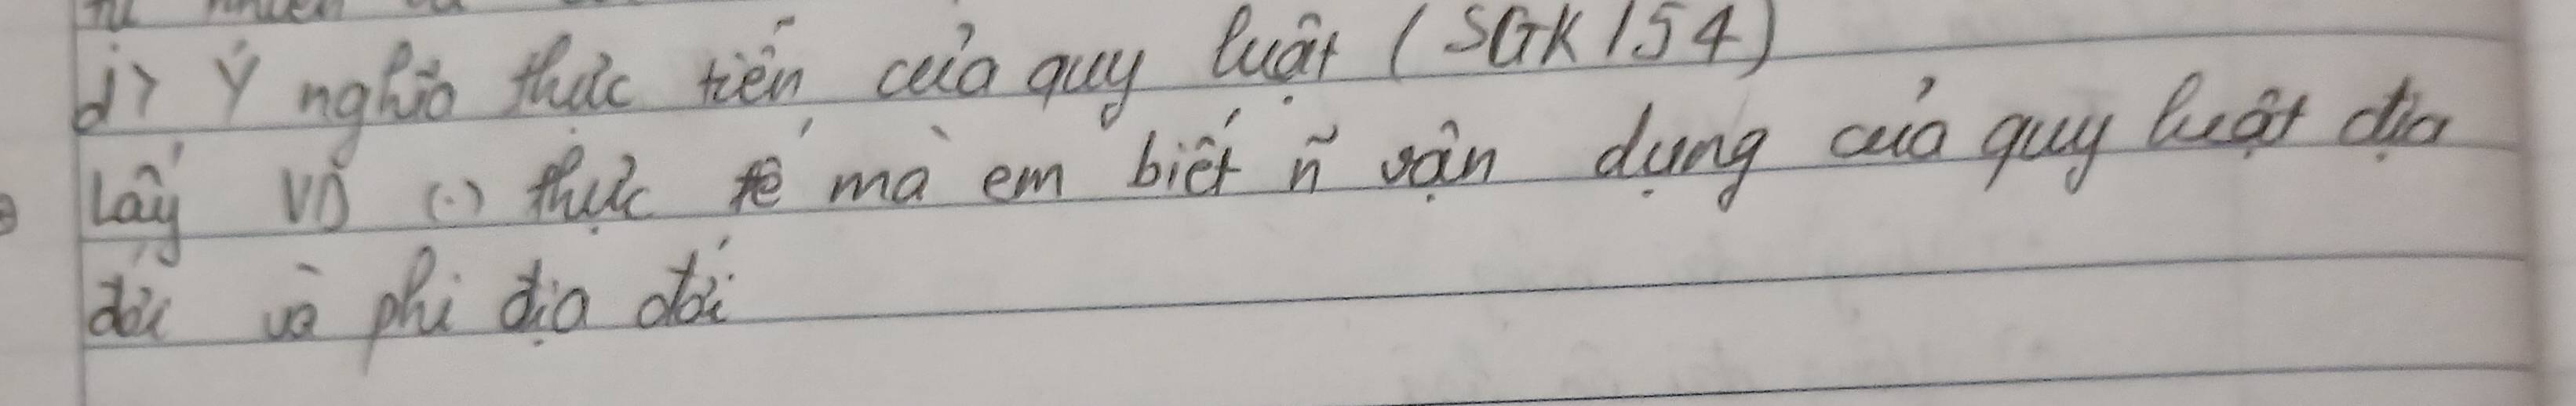 d> Ý nghĩa thực tiễn của quy luật (SGK 154)
Lấy VD (.) thực tế mà em biết ñ vận dụng của quy luật địa
đới và phi địa đới